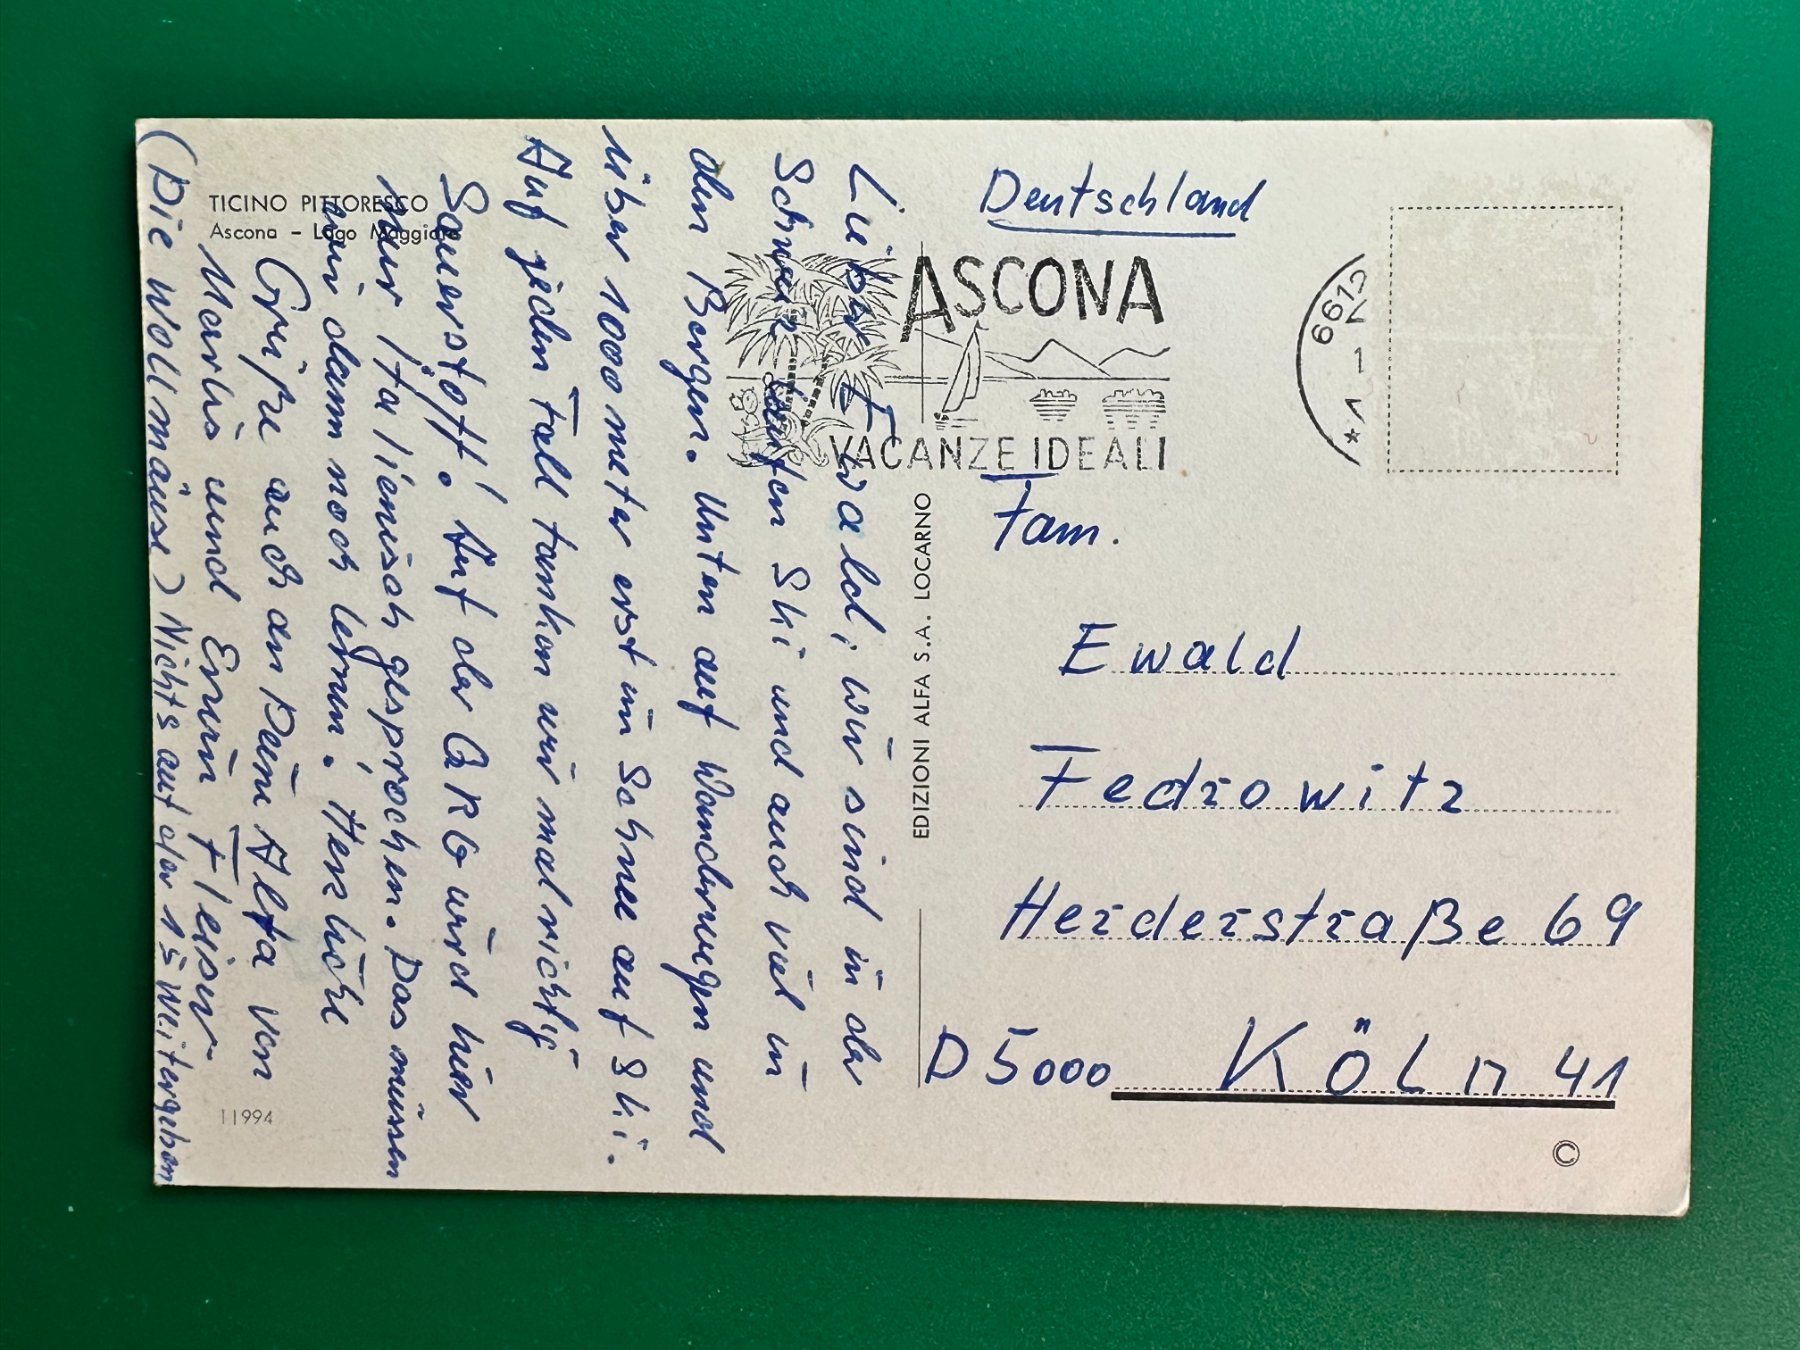 TICINO PITTORESCO
Ascona - Lago Maggiore
Lieber Ewald, wir sind in der
Schweiz laufen Ski und auch viel in
den Bergen. Unten auf Wanderungen und
über 1000 meter erst im Schnee auf Ski.
Auf jeden Fall tanken wir mal richtig
Sauerstoff! Auf der QRG wird hier
nur Italienisch gesprochen. Das müssen
wir dann noch lernen. Herzliche
Grüße auch an Deine Alfa von
Marlis und Erwin Fleiser
(Die Wollmäuse) Nichts auf der 15 weitergeben
11994
EDIZIONI ALFA S.A. LOCARNO
Deutschland
ASCONA
VACANZE IDEALI
6612
Fam.
Ewald
Fedrowitz
Herderstraße 69
D 5000 KÖLn 41
©